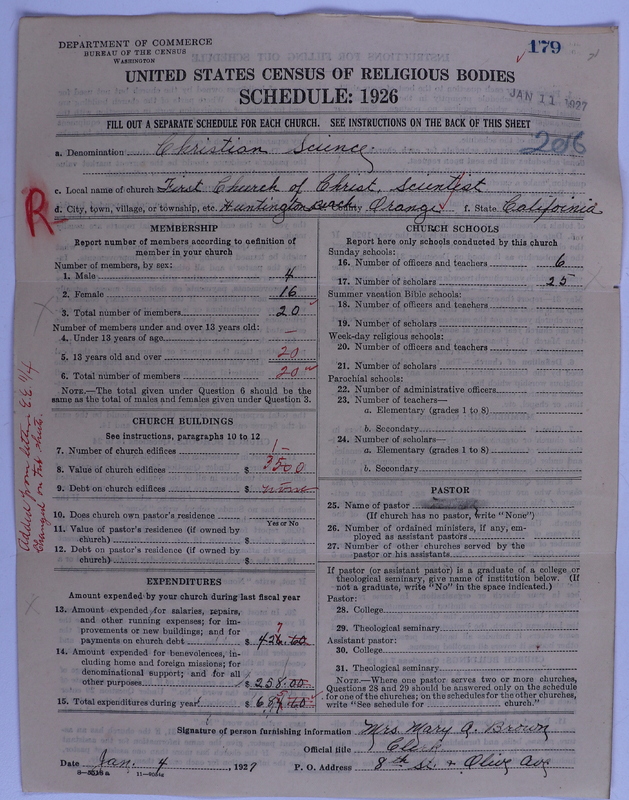 DEPARTMENT OF COMMERCE
BUREAU OF THE CENSUS
WASHINGTON
179
UNITED STATES CENSUS OF RELIGIOUS BODIES
SCHEDULE: 1926
JAN 11 1927
FILL OUT A SEPARATE SCHEDULE FOR EACH CHURCH. SEE INSTRUCTIONS ON THE BACK OF THIS SHEET
206
a. Denomination Christian Science
c. Local name of church First Church of Christ, Scientist
d. City, town, village, or township, etc. Huntington Beach County Orange f. State California
R
MEMBERSHIP
Report number of members according to definition of
member in your church
Number of members, by sex:
1. Male 4
2. Female 16
3. Total number of members 20
Number of members under and over 13 years old:
4. Under 13 years of age —
5. 13 years old and over 20
6. Total number of members 20
NOTE.—The total given under Question 6 should be the
same as the total of males and females given under Question 3.
CHURCH BUILDINGS
See instructions, paragraphs 10 to 12
7. Number of church edifices 1
8. Value of church edifices $ 3500
9. Debt on church edifices $ none
10. Does church own pastor's residence
Yes or No
11. Value of pastor's residence (if owned by
church) $
12. Debt on pastor's residence (if owned by
church) $
Added from letter
Changed on the sheets
EXPENDITURES
Amount expended by your church during last fiscal year
13. Amount expended for salaries, repairs,
and other running expenses; for im-
provements or new buildings; and for
payments on church debt $ 426.60
14. Amount expended for benevolences, in-
cluding home and foreign missions; for
denominational support; and for all
other purposes $ 258.00
15. Total expenditures during year $ 684.60
CHURCH SCHOOLS
Report here only schools conducted by this church
Sunday schools:
16. Number of officers and teachers 6
17. Number of scholars 25
Summer vacation Bible schools:
18. Number of officers and teachers
19. Number of scholars
Week-day religious schools:
20. Number of officers and teachers
21. Number of scholars
Parochial schools:
22. Number of administrative officers
23. Number of teachers—
a. Elementary (grades 1 to 8)
b. Secondary
24. Number of scholars—
a. Elementary (grades 1 to 8)
b. Secondary
PASTOR
25. Name of pastor
(If church has no pastor, write "None")
26. Number of ordained ministers, if any, em-
ployed as assistant pastors
27. Number of other churches served by the
pastor or his assistants
If pastor (or assistant pastor) is a graduate of a college or
theological seminary, give name of institution below. (If
not a graduate, write "No" in the space indicated.)
Pastor:
28. College
29. Theological seminary
Assistant pastor:
30. College
31. Theological seminary
NOTE.—Where one pastor serves two or more churches,
Questions 28 and 29 should be answered only on the schedule
for one of the churches; on the schedules for the other churches,
write "See schedule for church."
Signature of person furnishing information Mrs. Mary A. Brown
Official title Clerk
Date Jan. 4, 1927 P. O. Address 8th St. + Olive Ave
8-5518a